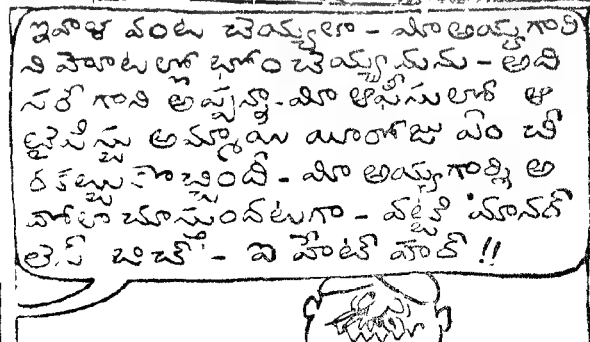 ఇవాళ వంట చెయ్యలా - మా అయ్యగారి
ని హోటల్లో భోం చెయ్యమను - అది
సరే గాని అప్పన్నా - మీ ఆఫీసులో ఆ
టైపిస్టు అమ్మాయి యీరోజు ఏం చీ
ర కట్టుకొచ్చిందీ - మా అయ్యగార్ని అ
దోలా చూస్తుందటగా - వట్టి మానర్
లెస్ బిచ్ - ఐ హేట్ హర్ !!